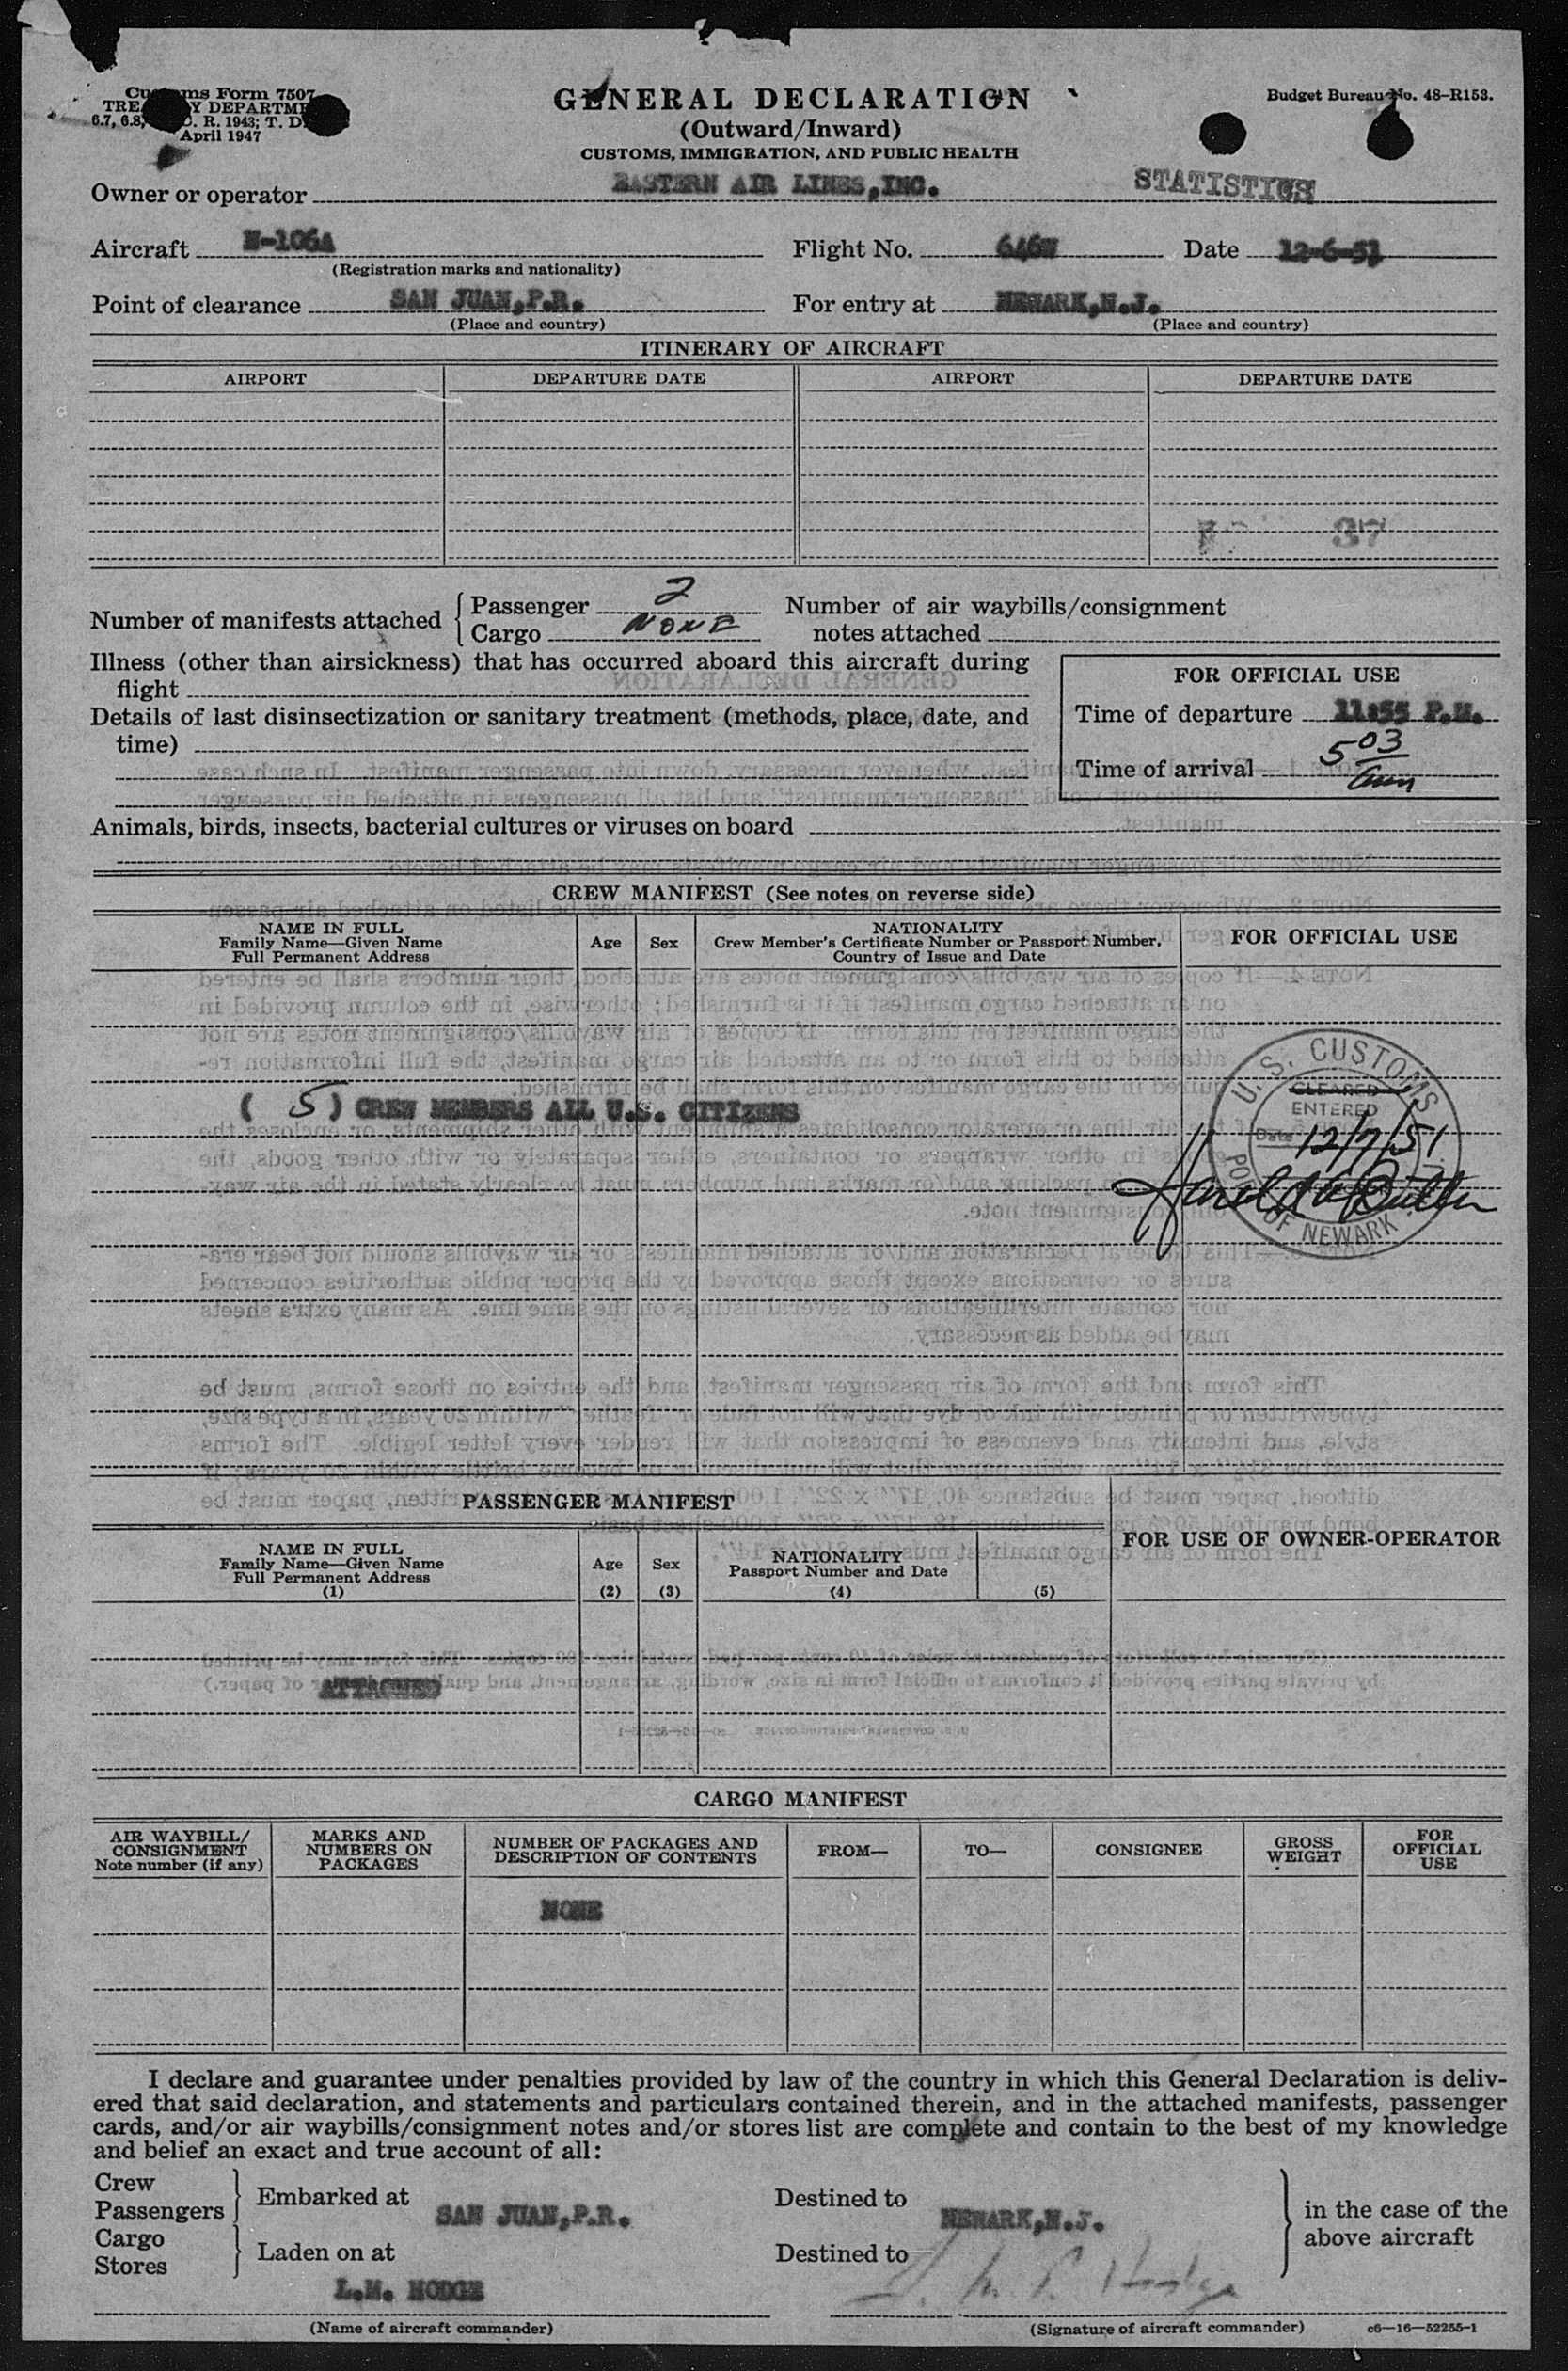 Customs Form 7507
TREASURY DEPARTMENT
6.7, 6.8, C. R. 1943; T. D.
April 1947
GENERAL DECLARATION
(Outward/Inward)
CUSTOMS, IMMIGRATION, AND PUBLIC HEALTH
Budget Bureau No. 48-R153.
Owner or operator EASTERN AIR LINES,INC. STATISTICS
Aircraft N-106A Flight No. 646W Date 12-6-51
(Registration marks and nationality)
Point of clearance SAN JUAN,P.R. For entry at NEWARK,N.J.
(Place and country) (Place and country)
ITINERARY OF AIRCRAFT
AIRPORT DEPARTURE DATE AIRPORT DEPARTURE DATE
37
Number of manifests attached { Passenger 2 Number of air waybills/consignment
Cargo NONE notes attached
Illness (other than airsickness) that has occurred aboard this aircraft during
flight
Details of last disinsectization or sanitary treatment (methods, place, date, and
time)
FOR OFFICIAL USE
Time of departure 11:55 P.M.
Time of arrival 5 03
Animals, birds, insects, bacterial cultures or viruses on board
CREW MANIFEST (See notes on reverse side)
NAME IN FULL
Family Name—Given Name
Full Permanent Address
Age Sex
NATIONALITY
Crew Member's Certificate Number or Passport Number,
Country of Issue and Date
FOR OFFICIAL USE
( 5 ) CREW MEMBERS ALL U.S. CITIZENS
U. S. CUSTOMS
CLEARED
ENTERED
Date 12/7/51
PORT OF NEWARK
PASSENGER MANIFEST
NAME IN FULL
Family Name—Given Name
Full Permanent Address
(1)
Age
(2)
Sex
(3)
NATIONALITY
Passport Number and Date
(4) (5)
FOR USE OF OWNER-OPERATOR
ATTACHED
CARGO MANIFEST
AIR WAYBILL/
CONSIGNMENT
Note number (if any)
MARKS AND
NUMBERS ON
PACKAGES
NUMBER OF PACKAGES AND
DESCRIPTION OF CONTENTS
FROM— TO— CONSIGNEE
GROSS
WEIGHT
FOR
OFFICIAL
USE
NONE
I declare and guarantee under penalties provided by law of the country in which this General Declaration is deliv-
ered that said declaration, and statements and particulars contained therein, and in the attached manifests, passenger
cards, and/or air waybills/consignment notes and/or stores list are complete and contain to the best of my knowledge
and belief an exact and true account of all:
Crew
Passengers } Embarked at SAN JUAN,P.R. Destined to NEWARK,N.J.
Cargo
Stores } Laden on at Destined to
in the case of the
above aircraft
L.M. HODGE
(Name of aircraft commander) (Signature of aircraft commander) c6—16—52255-1